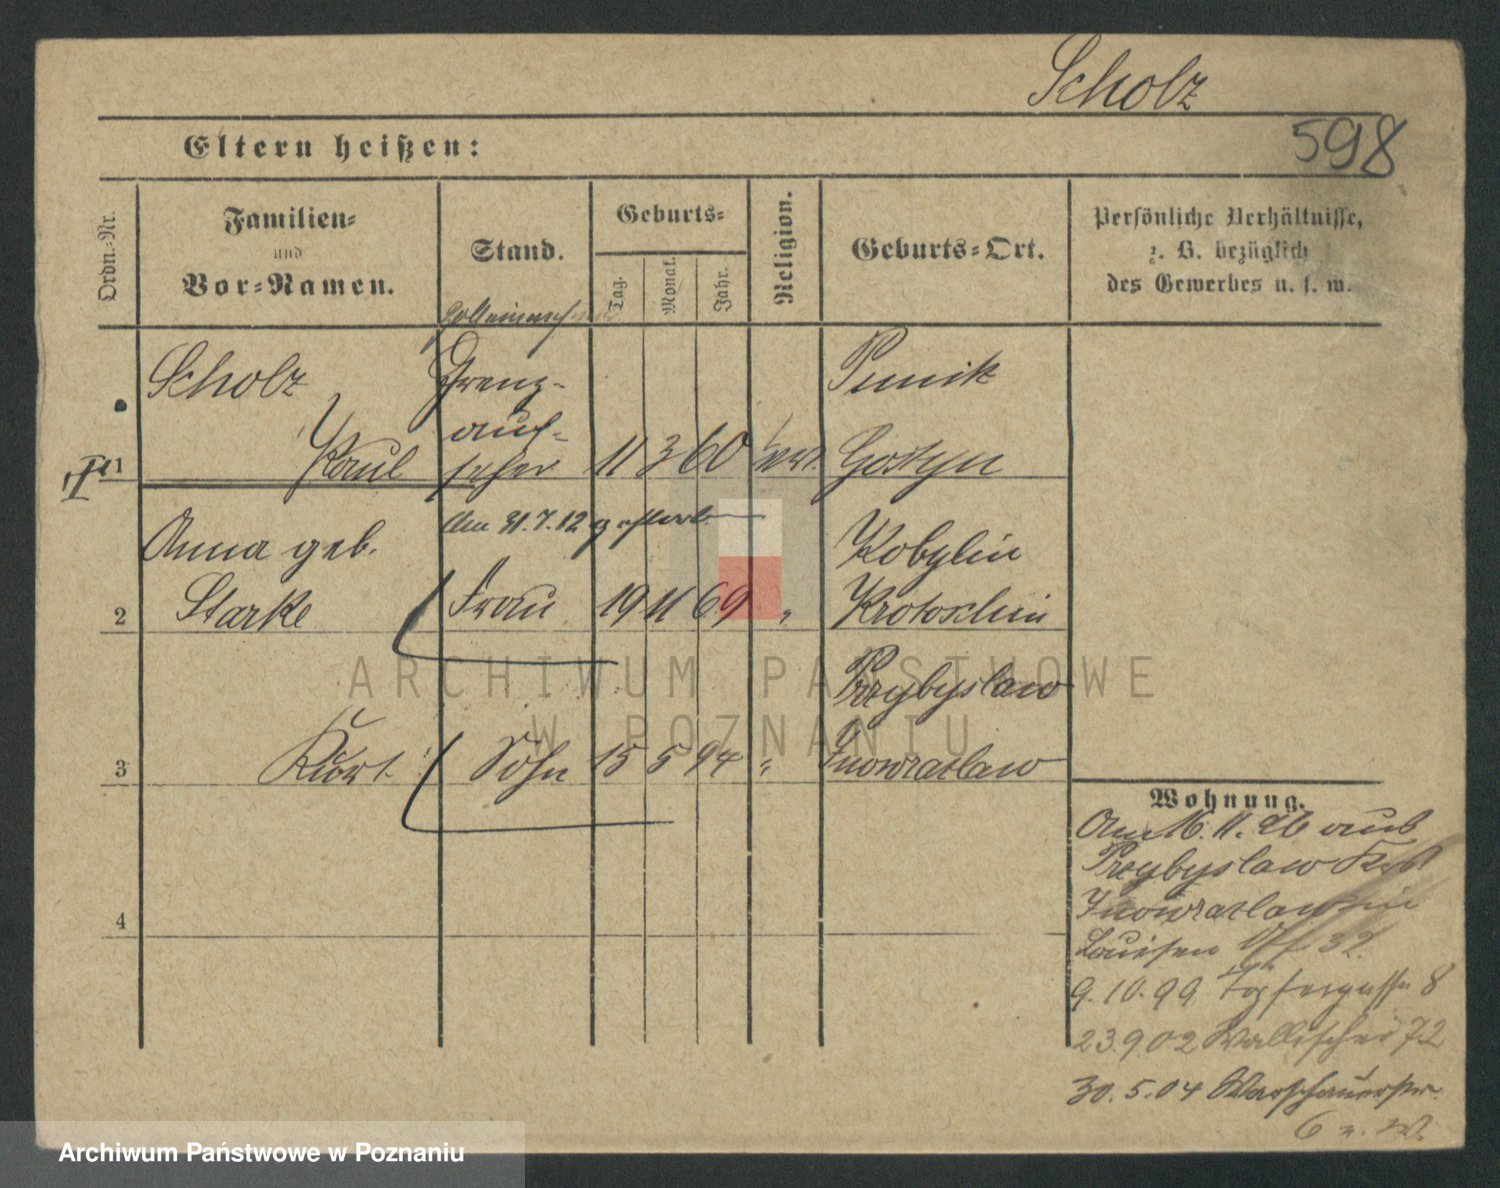 Scholz
598
Eltern heißen:
Ordn.-Nr.
Familien-
und
Vor-Namen.
Stand.
Geburts-
Tag.
Monat.
Jahr.
Religion.
Geburts-Ort.
Persönliche Verhältnisse,
z. B. bezüglich
des Gewerbes u. s. w.
Scholz
Grenz-
Punik
1
Paul
auf-
seher
11 3 60
Gostyn
Am 31.7.12 gestorb.
Anna geb.
Kobylin
2
Starke
Frau
19 11 69
"
Krotoschin
Przybyslaw
3
Kurt
Sohn
15 5 94
"
Inowrazlaw
4
Wohnung.
Am 16.11.96 aus
Przybyslaw Krs
Inowrazlaw
Louisen 32
9.10.99 Töpfergasse 8
23 9 02 Wallischei 72
30.5.04 Warschauerstr.
6
ARCHIWUM PAŃSTWOWE
W POZNANIU
Archiwum Państwowe w Poznaniu